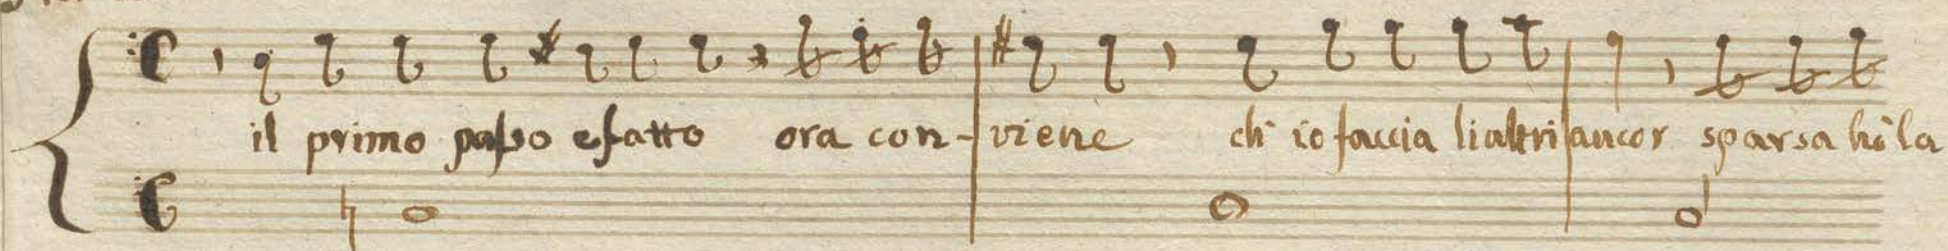 il primo passo e fatto ora con-viene ch' io faccia li altri ancor sparsa hò la